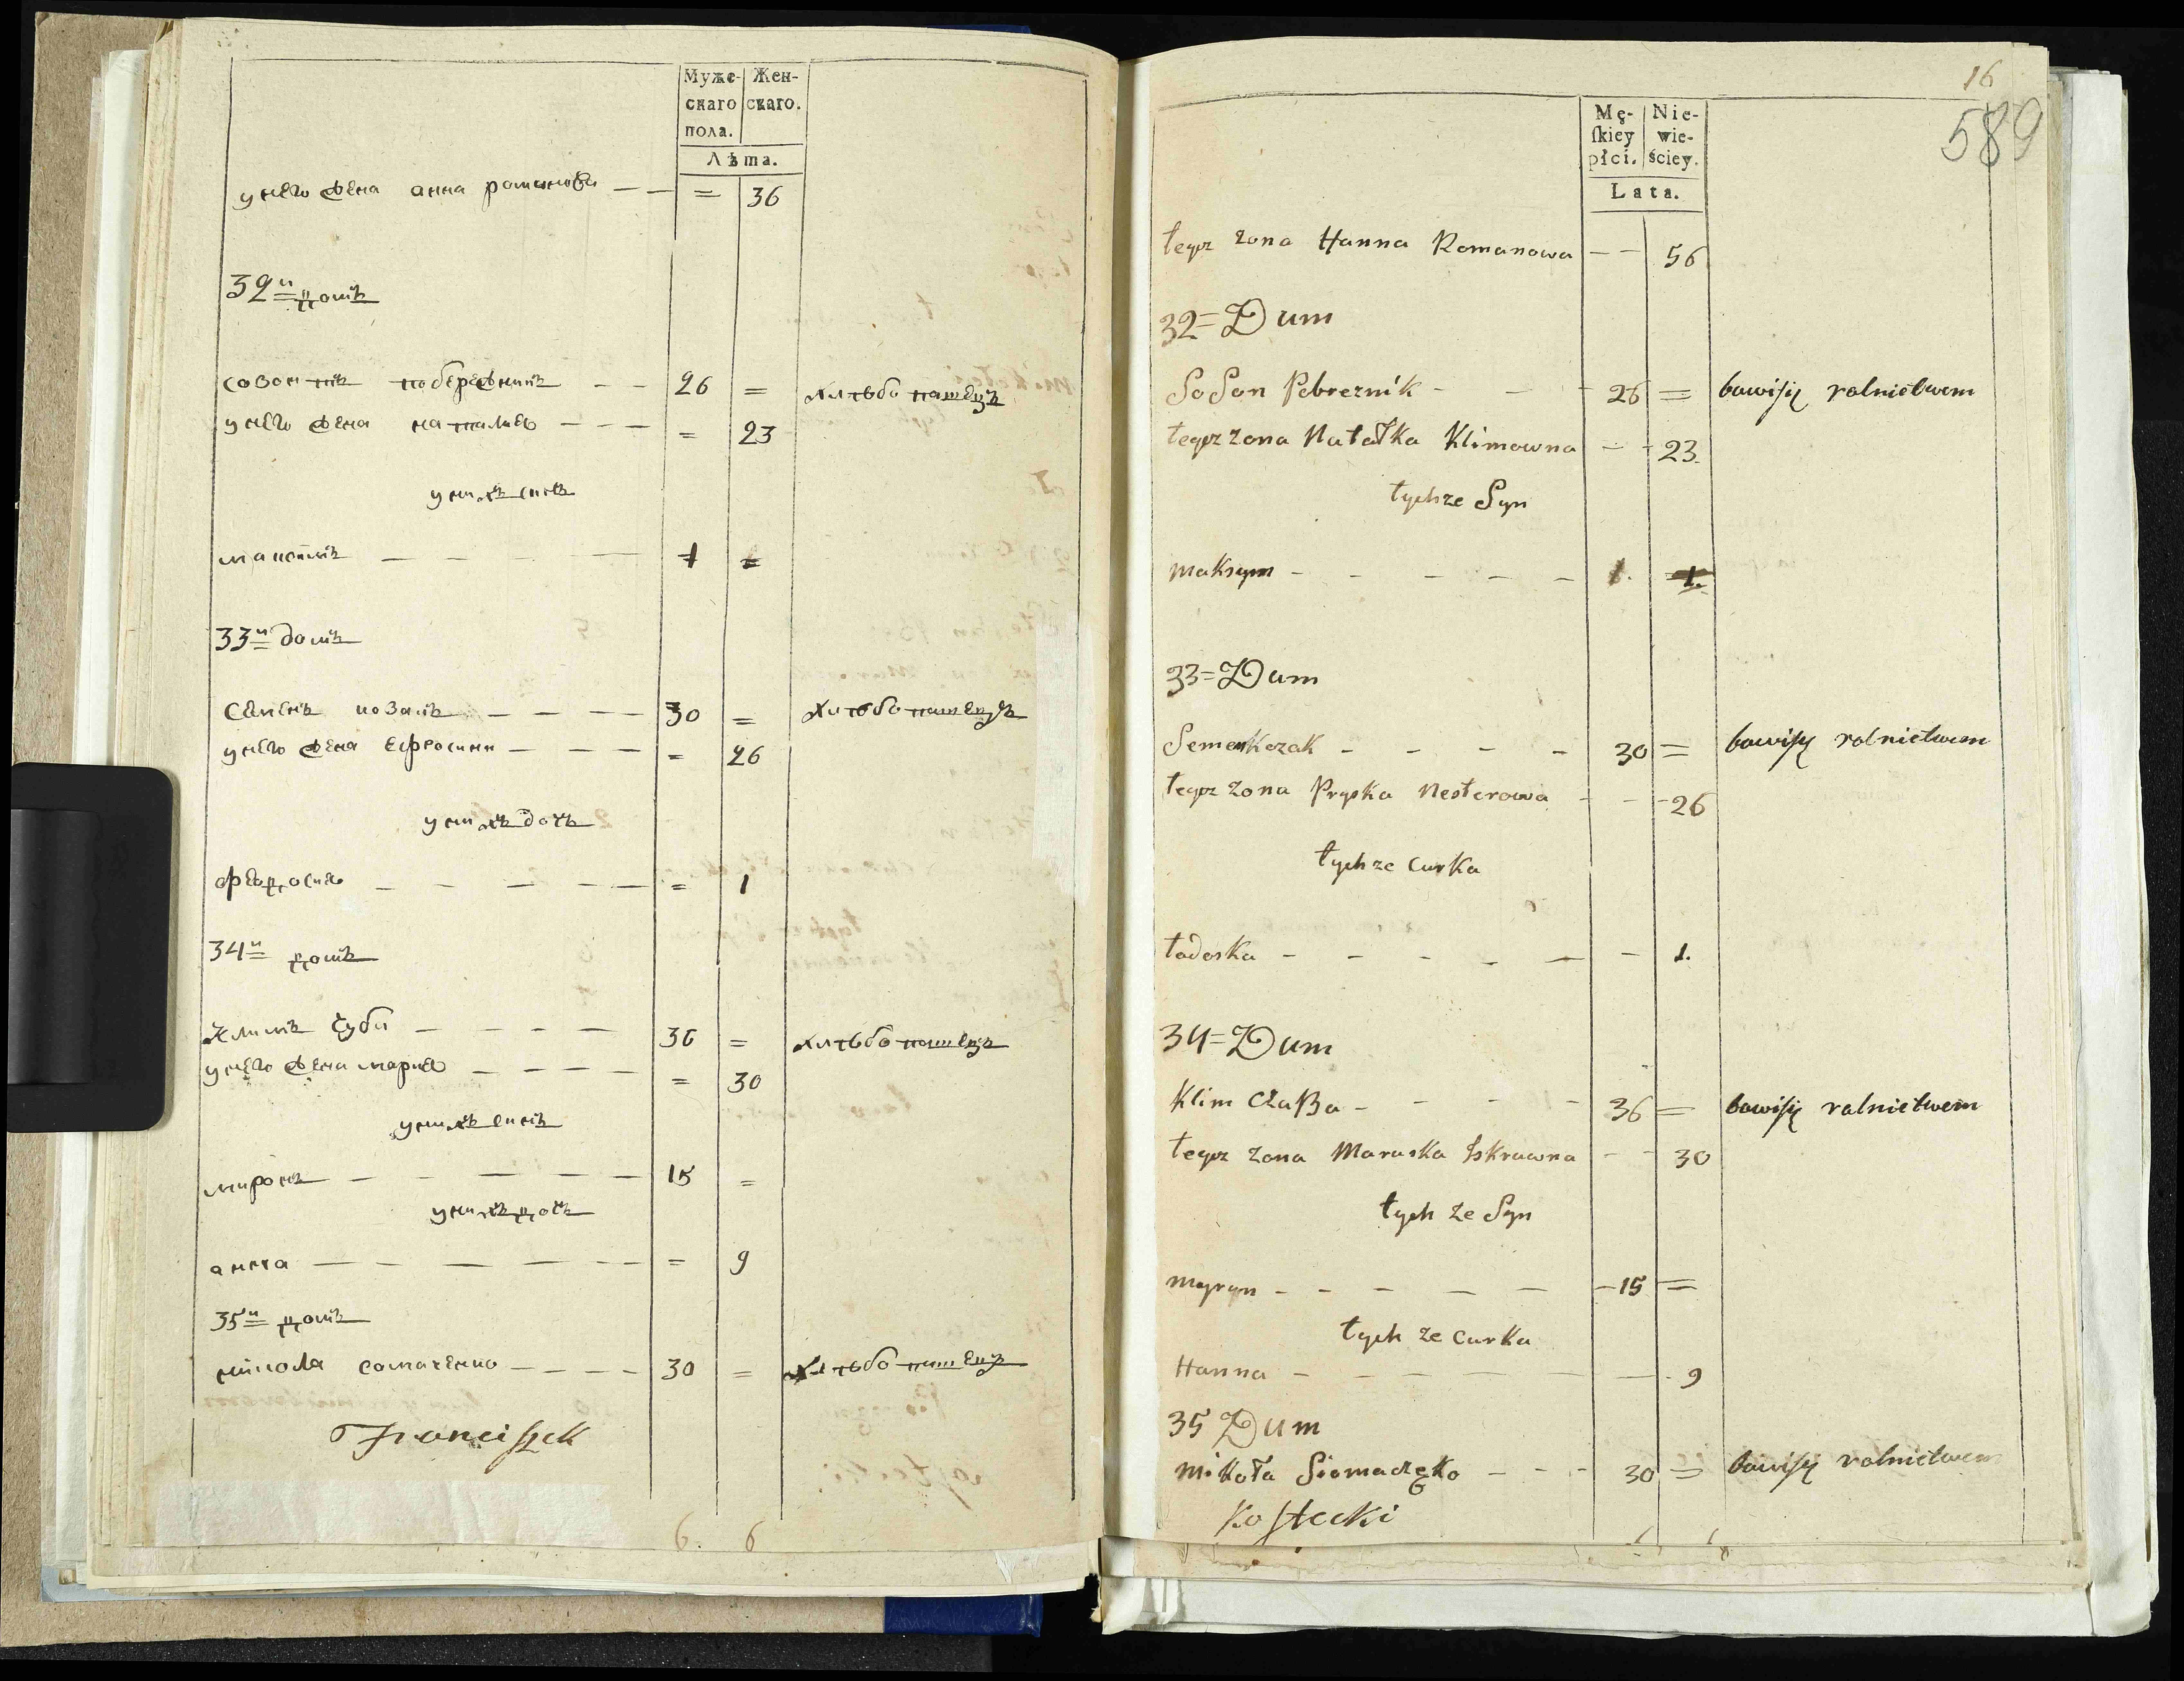 Муже-
скаго
пола.
Жен-
скаго.
Лѣта.
унего жена анна романова — — = 36
32й домъ
созонтъ побережникъ — — 26 = хлѣбопашецъ
унего жена наталия — — — = 23
унихъ снъ
максимъ — — — — 1 =
33й домъ
Семенъ козакъ — — — — 30 = хлѣбопашецъ
унего жена Ефросини — — — = 26
унихъ дочъ
феодосия — — — — — = 1
34й домъ
Климъ Чуба — — — — 36 = хлѣбопашецъ
унего жена мария — — — — = 30
унихъ синъ
миронъ — — — — — 15 =
унихъ дочъ
анна — — — — — — = 9
35й домъ
никола сомаченко — — — — 30 = хлѣбопашецъ
Franciszek
6. 6
16
589
Mę-
skiey
płci.
Nie-
wie-
ściey.
Lata.
tegoz zona Hanna Romanowa — — 56
32 = Dum
SoSon Pebreznik - — - 26 = bawisię rolnictwem
tegoz zona Natałka Klimowna — - 23.
tychze Syn
maksym - - - - - 1. 1.
33 = Dum
Semen Kozak - - - - 30 = bawisię rolnictwem
tegoz zona Pryska Nesterowa - - - 26
tychze Curka
todoska - - - - — - 1.
34 = Dum
Klim CzaBa - - - - 36 = bawisię rolnictwem
tegoz zona Maruska Iskrawna - - 30
tych ze Syn
myryn - - - — — - 15 =
tych ze Curka
Hanna - - - — — — - 9
35 Dum
Mikoła Siomaczęko - - - 30 = bawisię rolnictwem
Kostecki